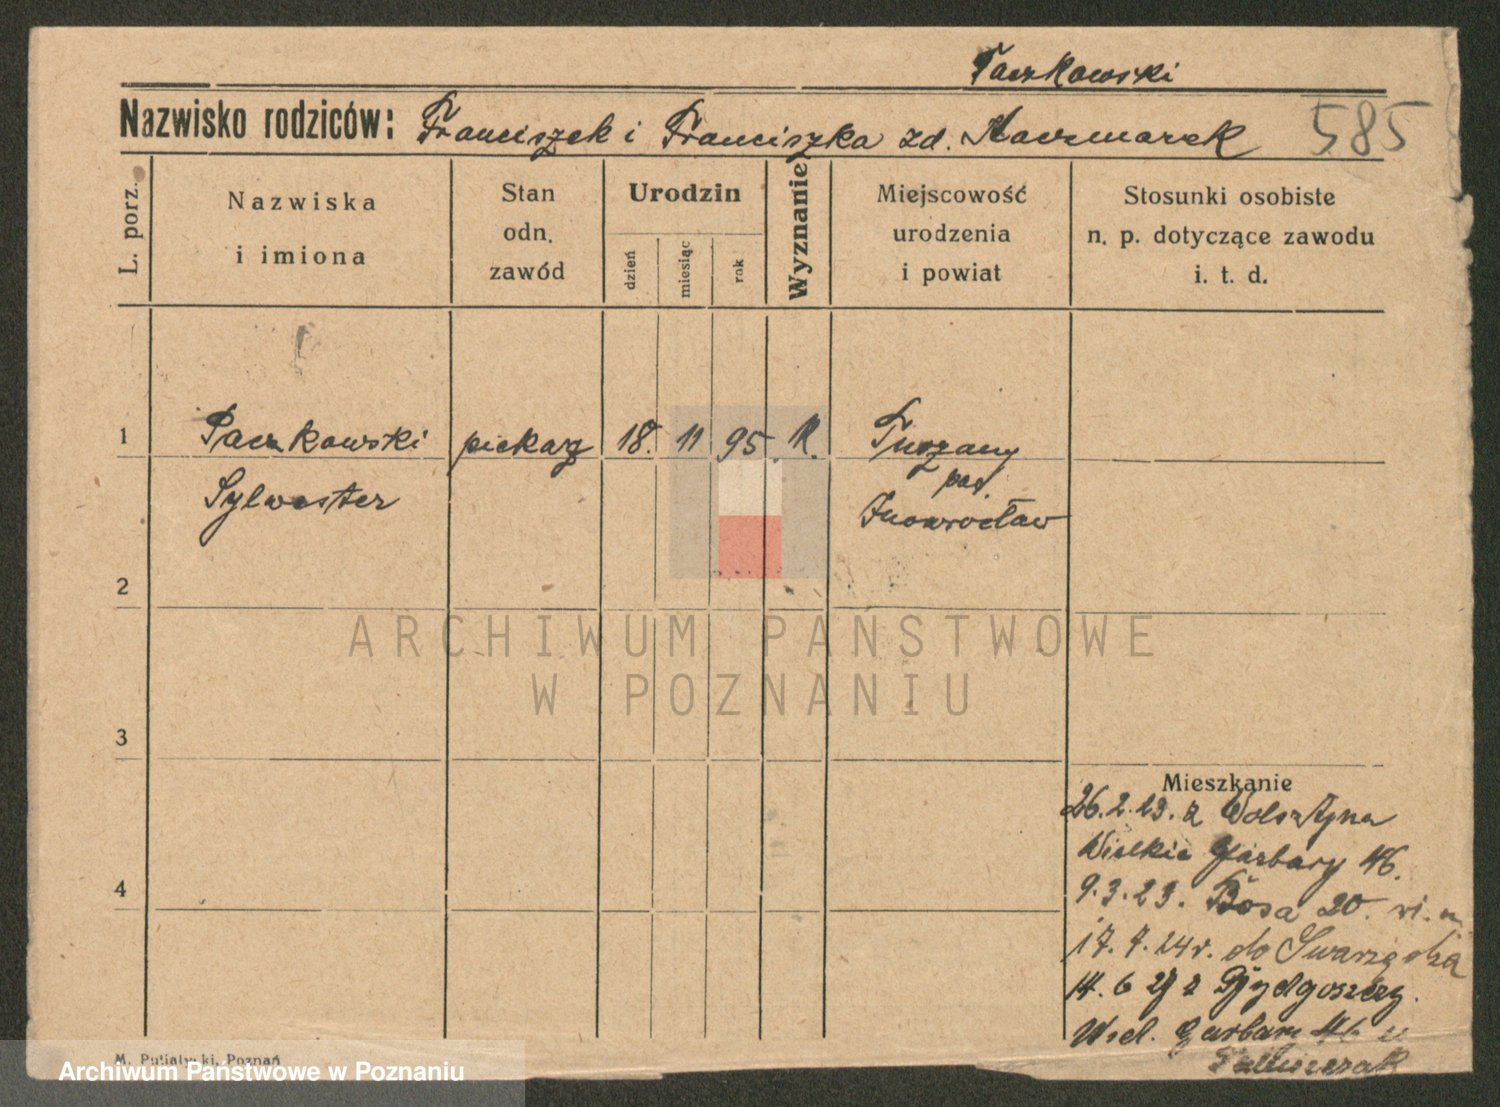 Paczkowski
Nazwisko rodziców: Franciszek i Franciszka zd. Kaczmarek 585
L. porz.
Nazwiska
i imiona
Stan
odn.
zawód
Urodzin
dzień
miesiąc
rok
Wyznanie
Miejscowość
urodzenia
i powiat
Stosunki osobiste
n. p. dotyczące zawodu
i. t. d.
1 Paczkowski piekarz 18. 11 95. K. Tuczany
Sylwester pow.
Inowrocław
2
3
4
ARCHIWUM PAŃSTWOWE
W POZNANIU
Mieszkanie
26.2.23. z Wolsztyna
Wielkie Garbary 46.
9.3.23. Bosa 20.
17.7.24r. do Swarzędza
14.6 27 z Bydgoszczy.
Wiel. Garbary 46 u
M. Putiatycki, Poznań
Archiwum Państwowe w Poznaniu